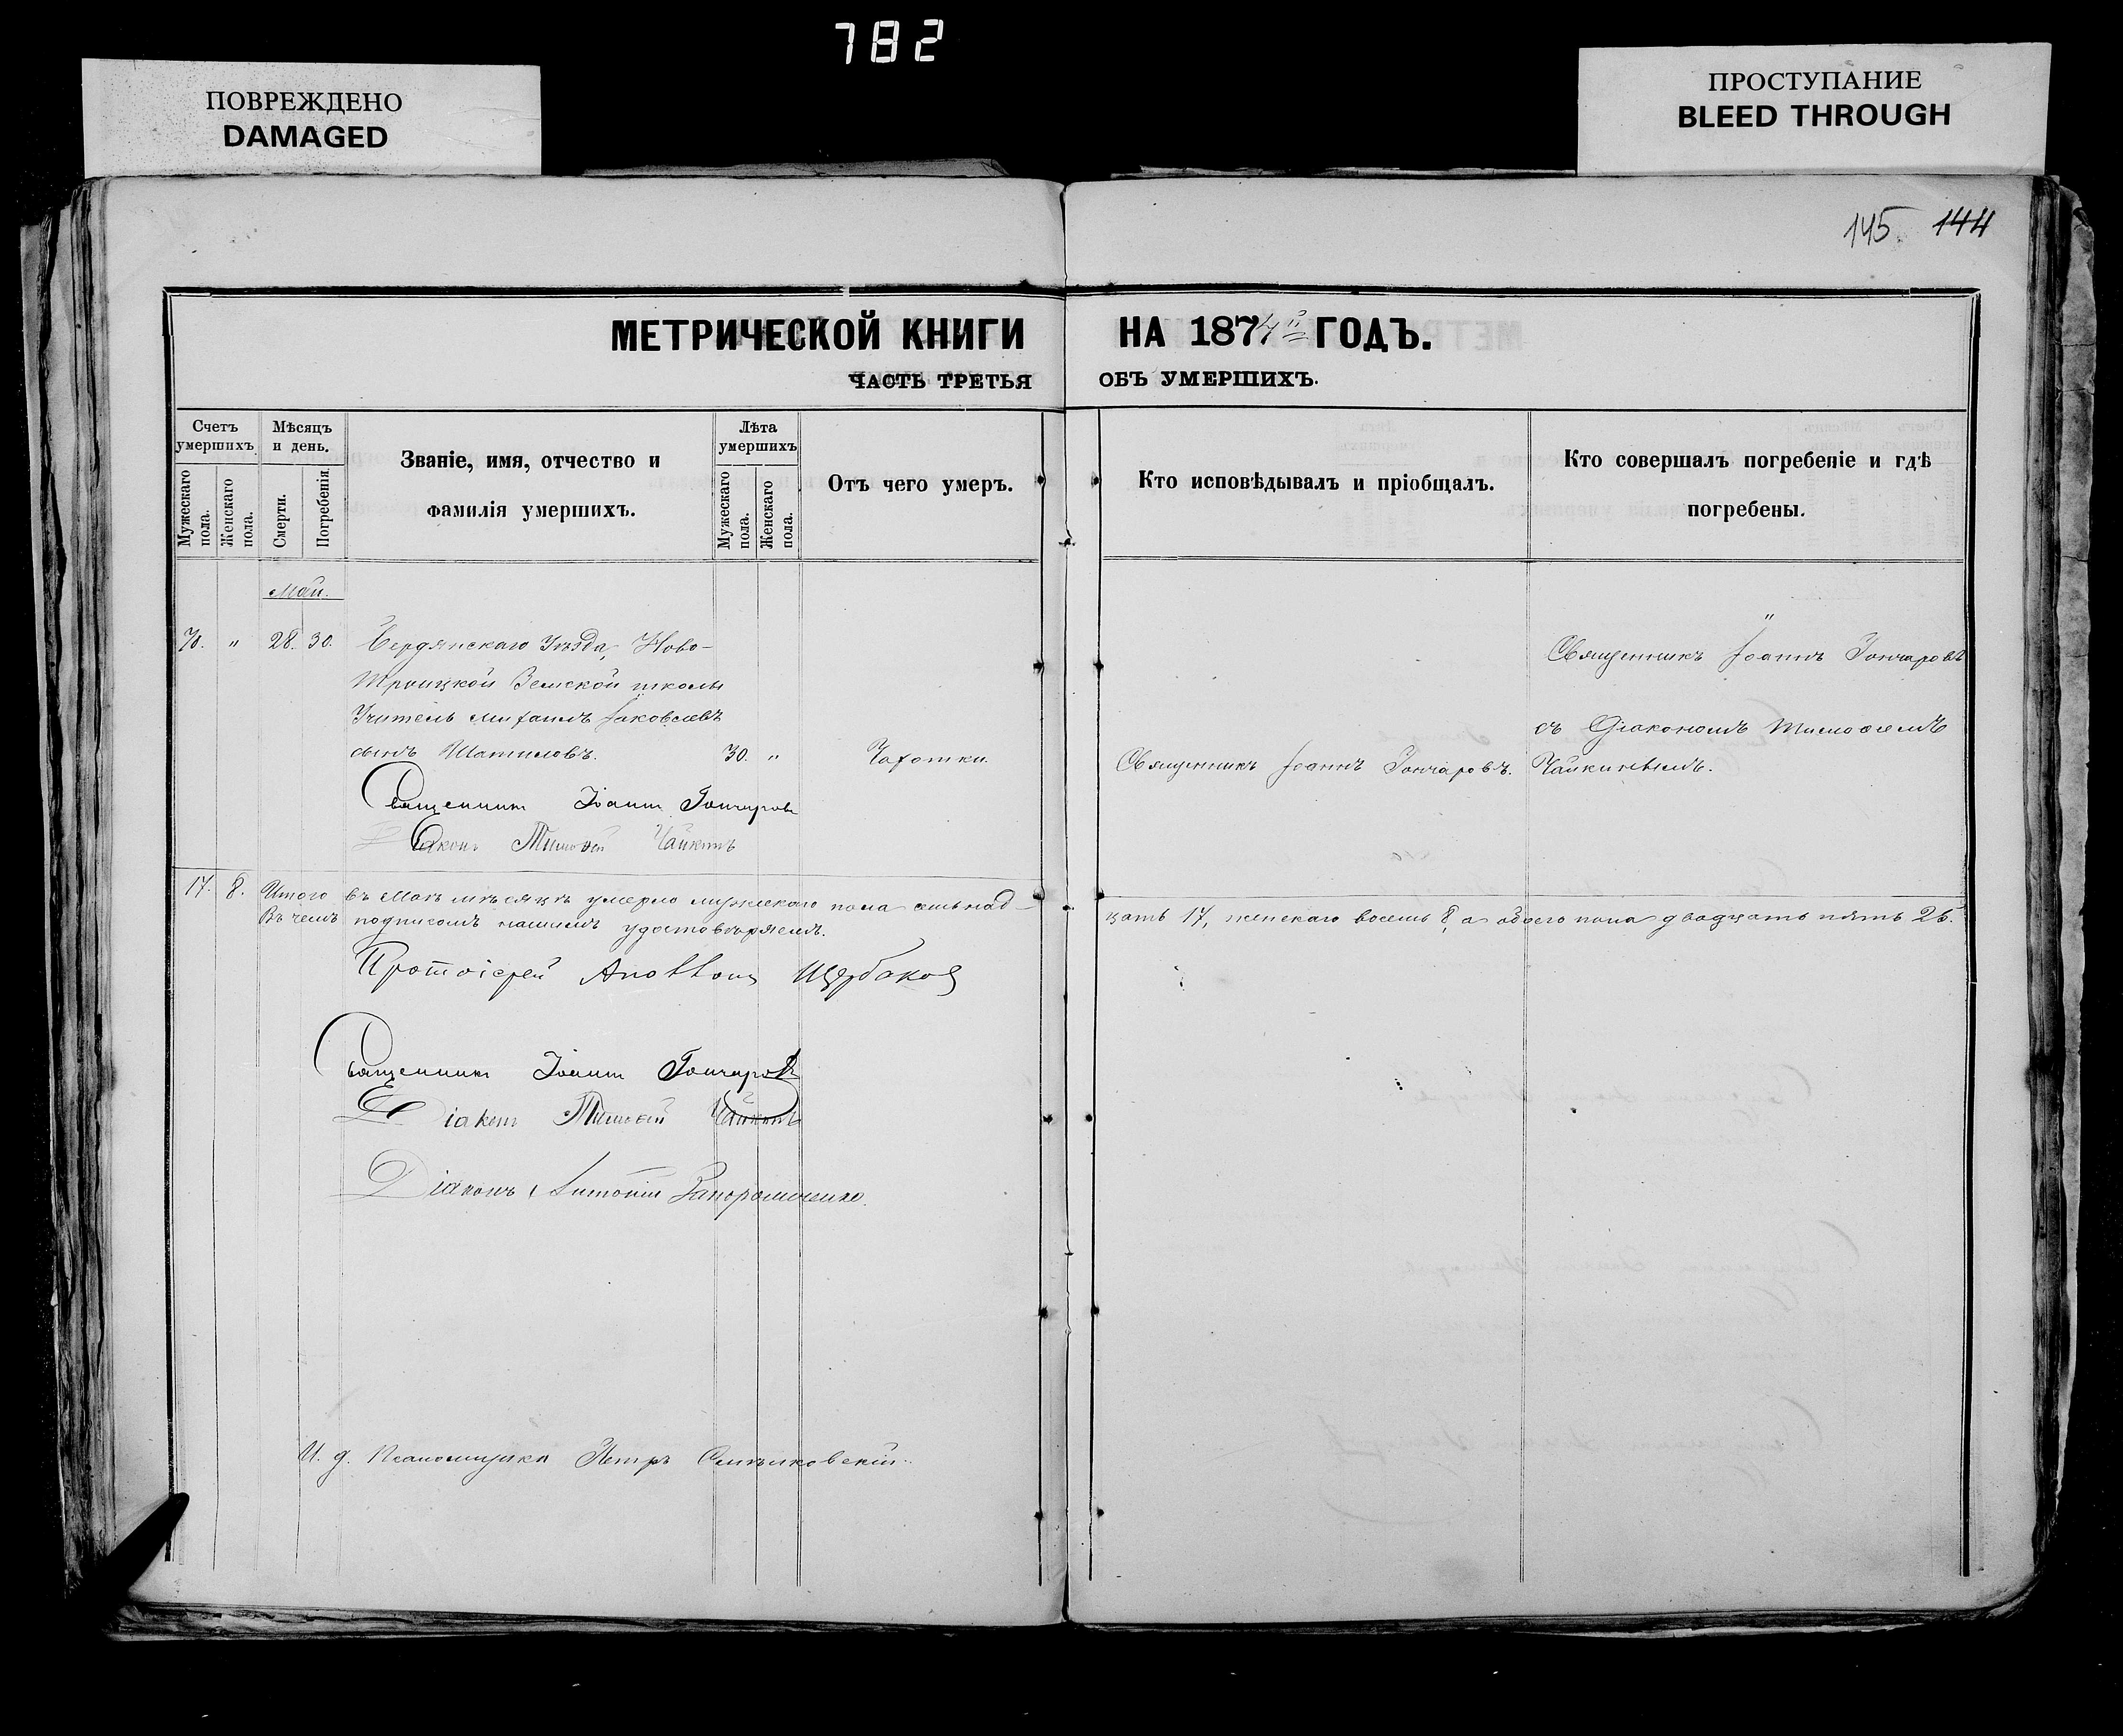 782
ПОВРЕЖДЕНО
DAMAGED
ПРОСТУПАНИЕ
BLEED THROUGH
145. 144
МЕТРИЧЕСКОЙ КНИГИ НА 1874й ГОДЪ.
ЧАСТЬ ТРЕТЬЯ ОБЪ УМЕРШИХЪ.
Счетъ умершихъ.
Мужескаго пола.
Женскаго пола.
Мѣсяцъ и день.
Смерти.
Погребенія
Званіе, имя, отчество и
фамилія умершихъ.
Лѣта умершихъ
Мужескаго пола.
Женскаго пола.
Отъ чего умеръ.
Кто исповѣдывалъ и пріобщалъ.
Кто совершалъ погребеніе и гдѣ
погребены.
Май.
70. " 28. 30. Бердянскаго Уѣзда, Ново-
Троицкой Земской школы
Учитель Михаилъ Іаковлевъ
сынъ Шатиловъ. 30. " Чахотки.
Священникъ Іоаннъ Гончаровъ.
"
Священникъ Іоаннъ Гончаровъ
съ Діакономъ Тимофеемъ
Чайкинымъ.
Священникъ Іоаннъ Гончаровъ
Діаконъ Тимофей Чайкинъ
17. 8. Итого въ Маѣ мѣсяцѣ умерло мужескаго пола семьнад-
цать 17, женскаго восемь 8, а обоего пола двадцать пять 25.
Въ чемъ подписомъ нашимъ удостовѣряемъ.
Протоіерей Аполлонъ Щербаковъ
Священникъ Іоаннъ Гончаровъ
Діаконъ Тимофей Чайкинъ
Діаконъ Антоній
И. д. Псаломщика Петръ